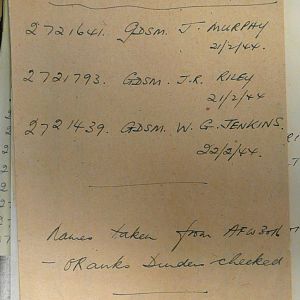 2721641. GDSM. J. MURPHAY
21/2/44.
2721793. GDSM. J.R. RILEY
21/2/44
2721439. GDSM. W. G. JENKINS.
22/2/44.
Names taken from AFW3016
- ORanks checked